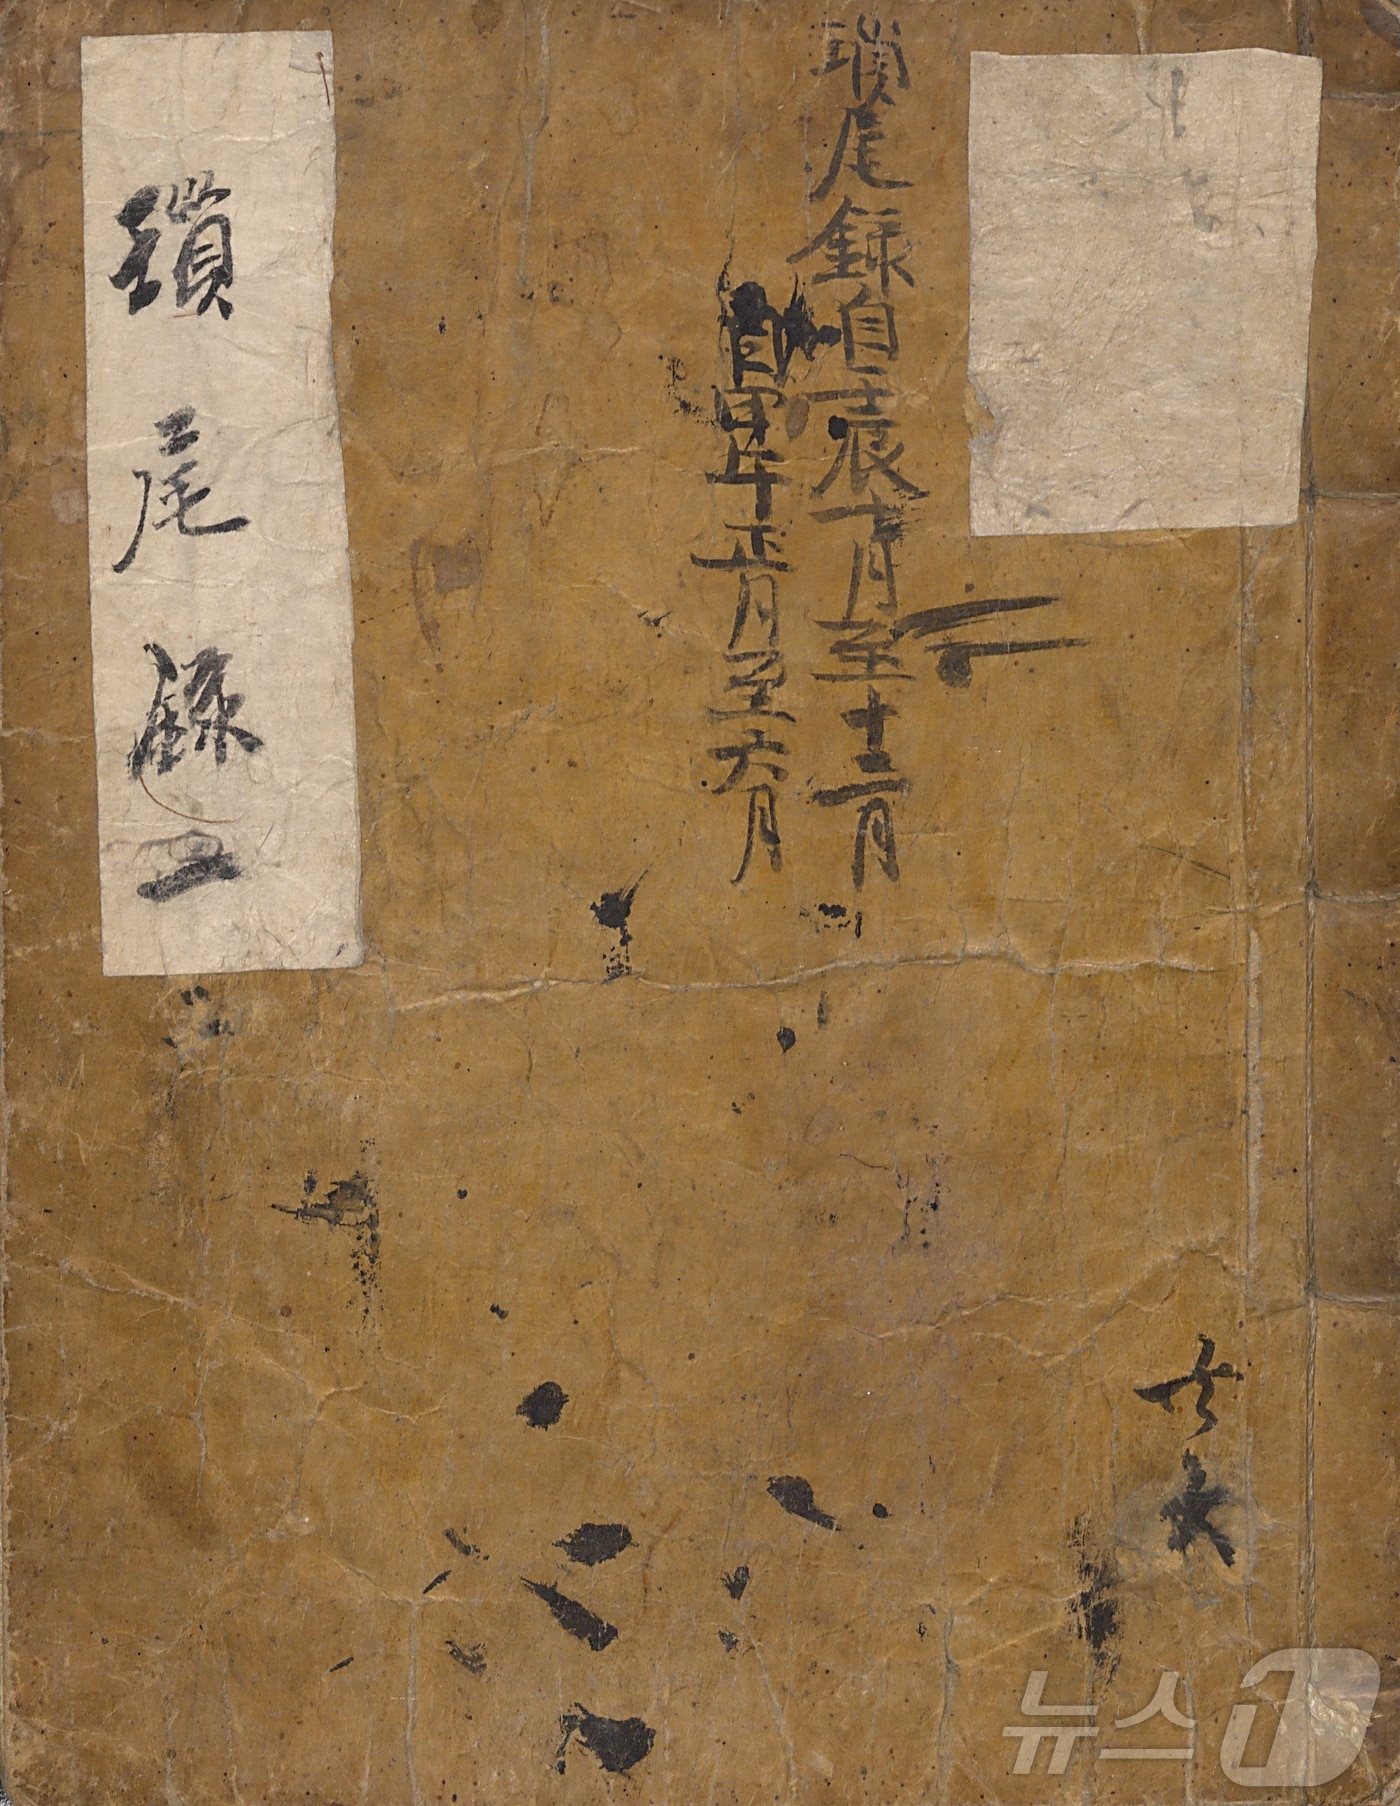 瑣尾錄自壬辰七月至十二月
自甲午正月至六月
瑣尾錄 二
뉴스1